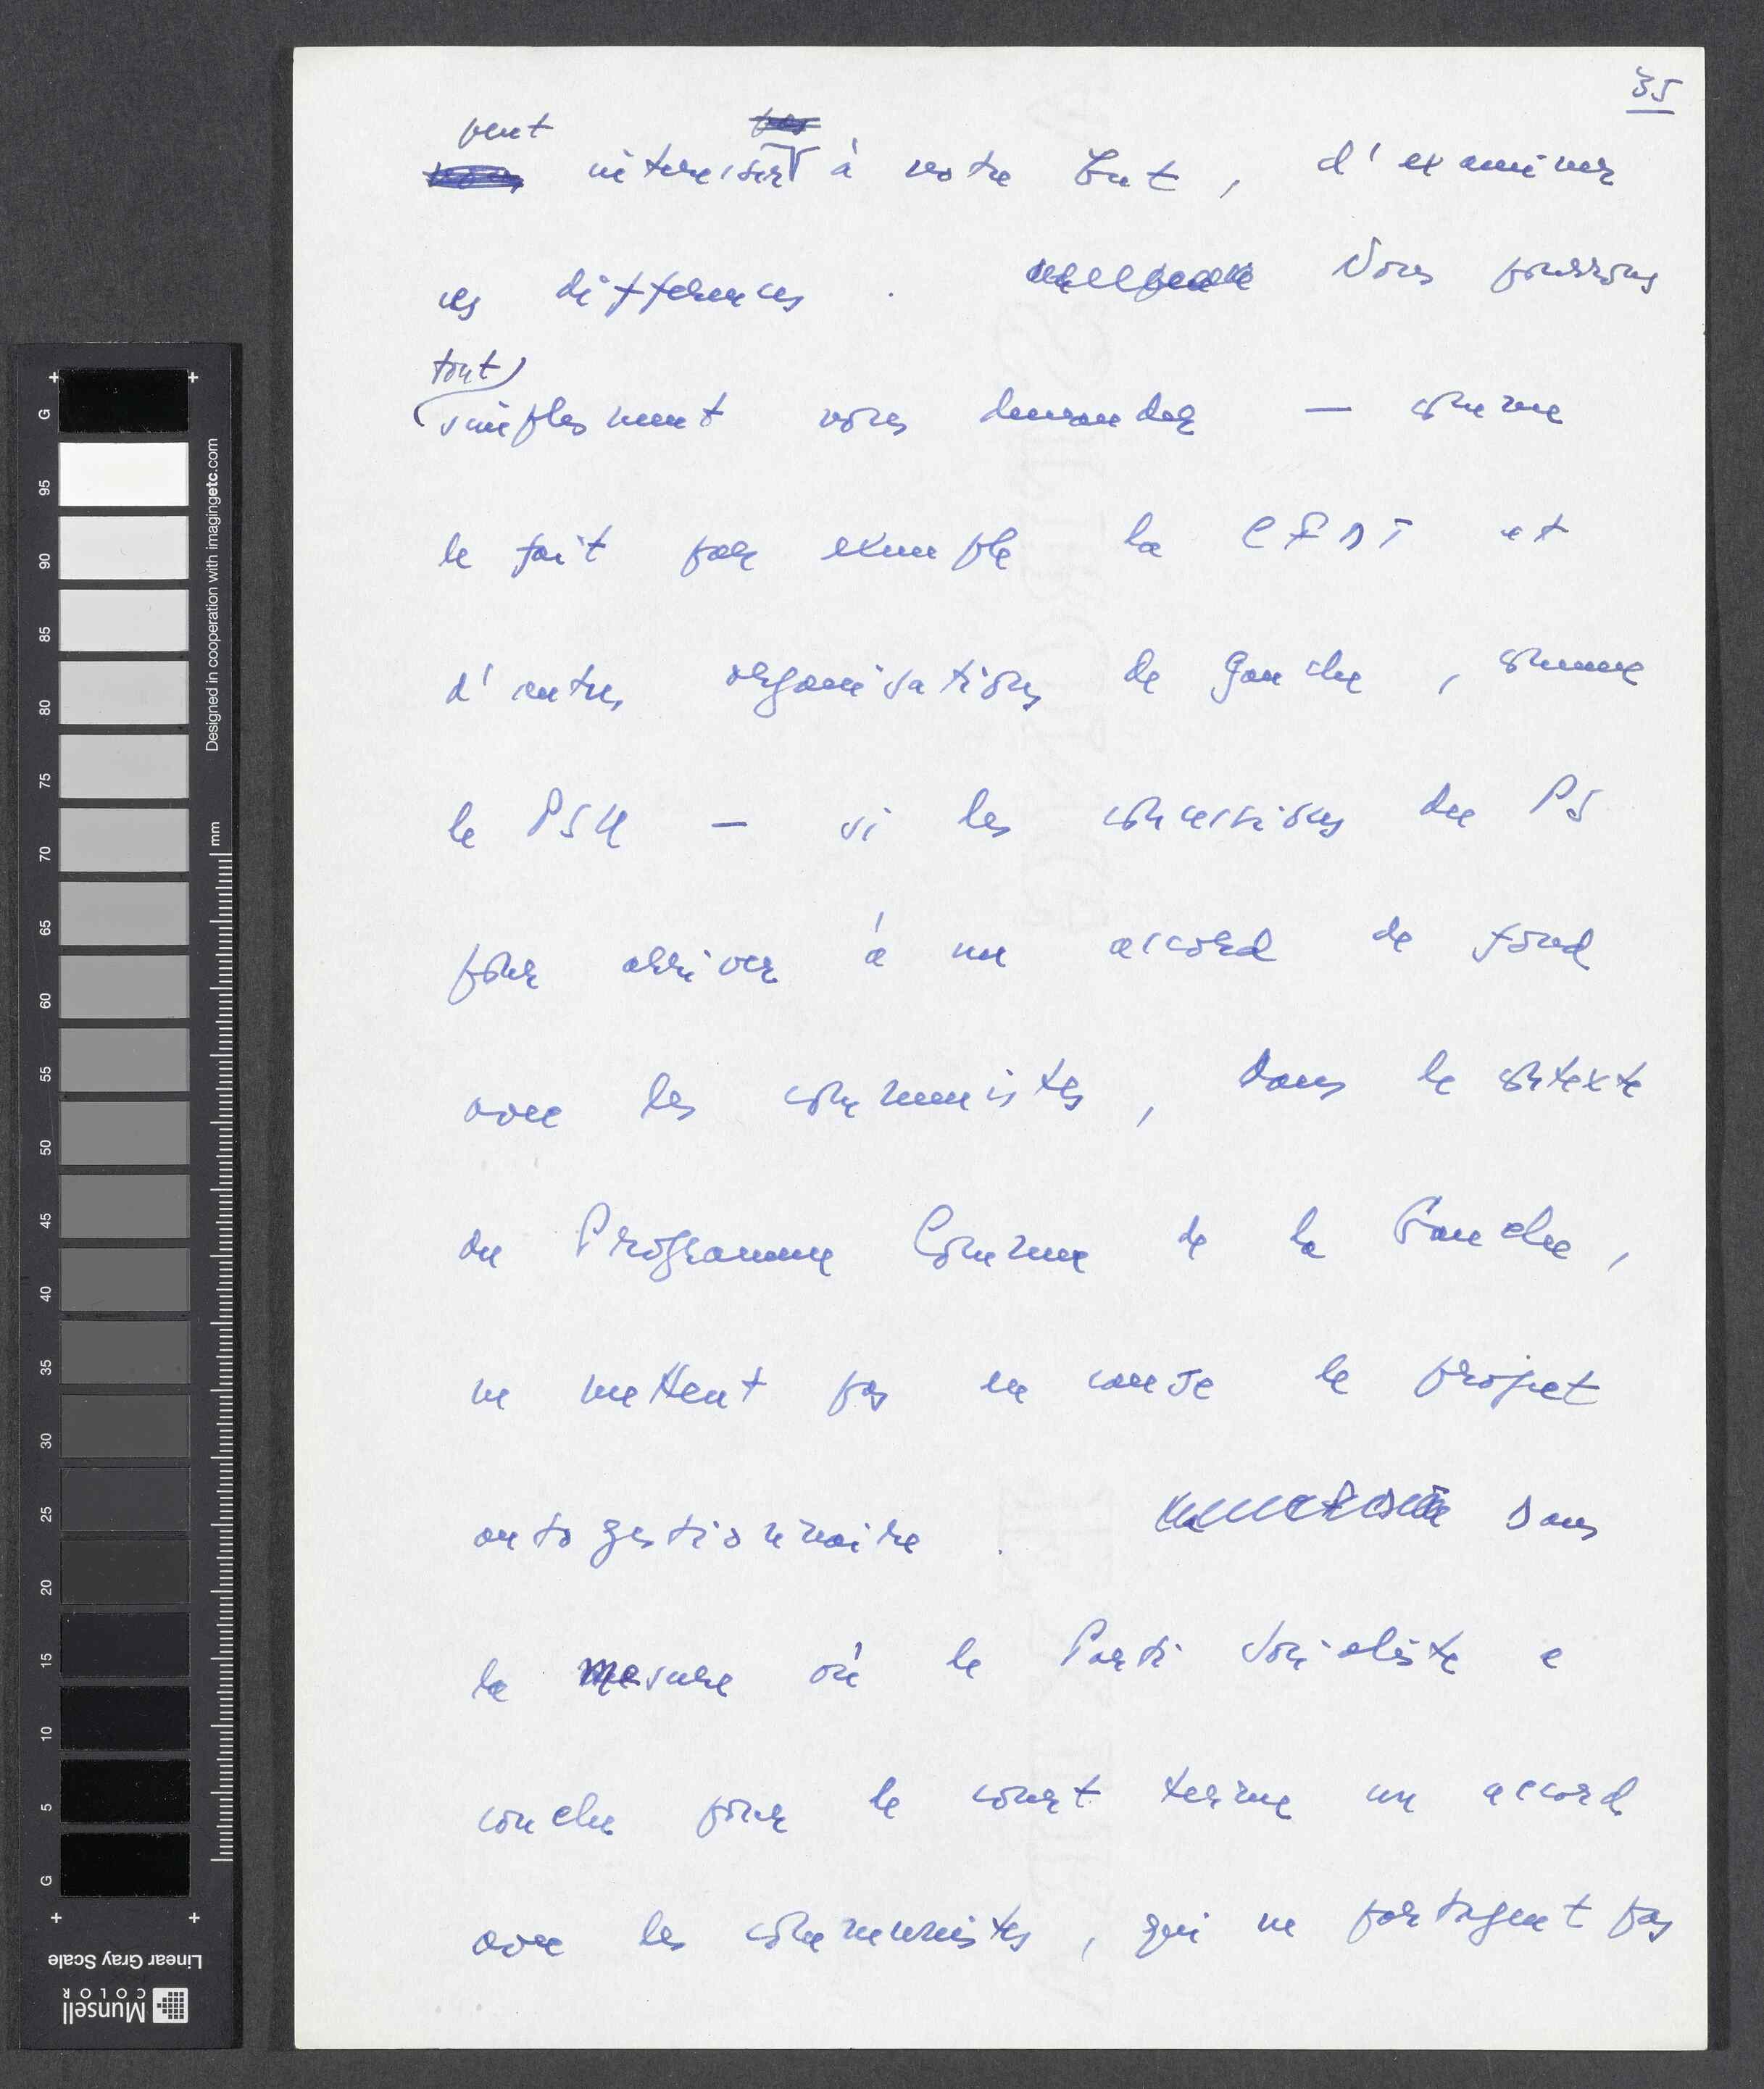 35
peut
intéresser à notre but, d'examiner
ces différences. Nous pourrions
tout
simplement vous demander — comme
le fait par exemple la CFDT et
d'autres organisations de gauche, comme
le PSU — si les concessions du PS
pour arriver à un accord de fond
avec les communistes, dans le contexte
du Programme Commun de la Gauche,
ne mettent pas en cause le projet
autogestionnaire. Dans
la mesure où le Parti Socialiste a
conclu pour le court terme un accord
avec les communistes, qui ne partagent pas
G
95
90
85
80
75
70
65
60
55
50
45
40
35
30
25
20
15
10
5
G
mm
Designed in cooperation with imagingetc.com
Linear Gray Scale
Munsell
COLOR